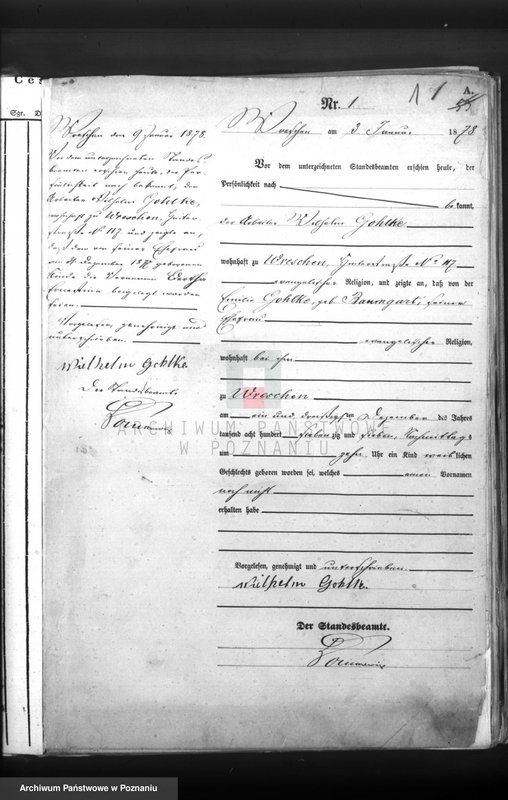 Ces
Sgr. D
A.
Nr. 1
11
55
Wreschen am 3 Januar 1878
Vor dem unterzeichneten Standesbeamten erschien heute, der
Persönlichkeit nach
bekannt,
der Arbeiter Wilhelm Gohlke
wohnhaft zu Wreschen, No 117
evangelischer Religion, und zeigte an, daß von der
Emilie Gohlke, geb. Baumgart, seiner
Ehefrau
evangelischer Religion,
wohnhaft bei ihm
zu Wreschen
am ein und dreißigsten Dezember des Jahres
tausend acht hundert siebenzig und sieben, Nachmittags
um zehn Uhr ein Kind weiblichen
Geschlechts geboren worden sei, welches einen Vornamen
noch nicht
erhalten habe
Vorgelesen, genehmigt und unterschrieben.
Wilhelm Gohlke.
Der Standesbeamte.
Wreschen den 9 Januar 1878.
Vor dem unterzeichneten Standes-
beamten erschien heute, der Per-
sönlichkeit nach bekannt, der
Arbeiter Wilhelm Gohlke,
wohnhaft zu Wreschen,
No 117 und zeigte an,
daß dem von seiner Ehefrau
am 31 Dezember 1877 geborenen
Kinde die Vornamen Bertha
Ernestine beigelegt worden
seien.
Vorgelesen, genehmigt und
unterschrieben.
Wilhelm Gohlke
Der Standesbeamte
ARCHIWUM PAŃSTWOWE
W POZNANIU
Archiwum Państwowe w Poznaniu